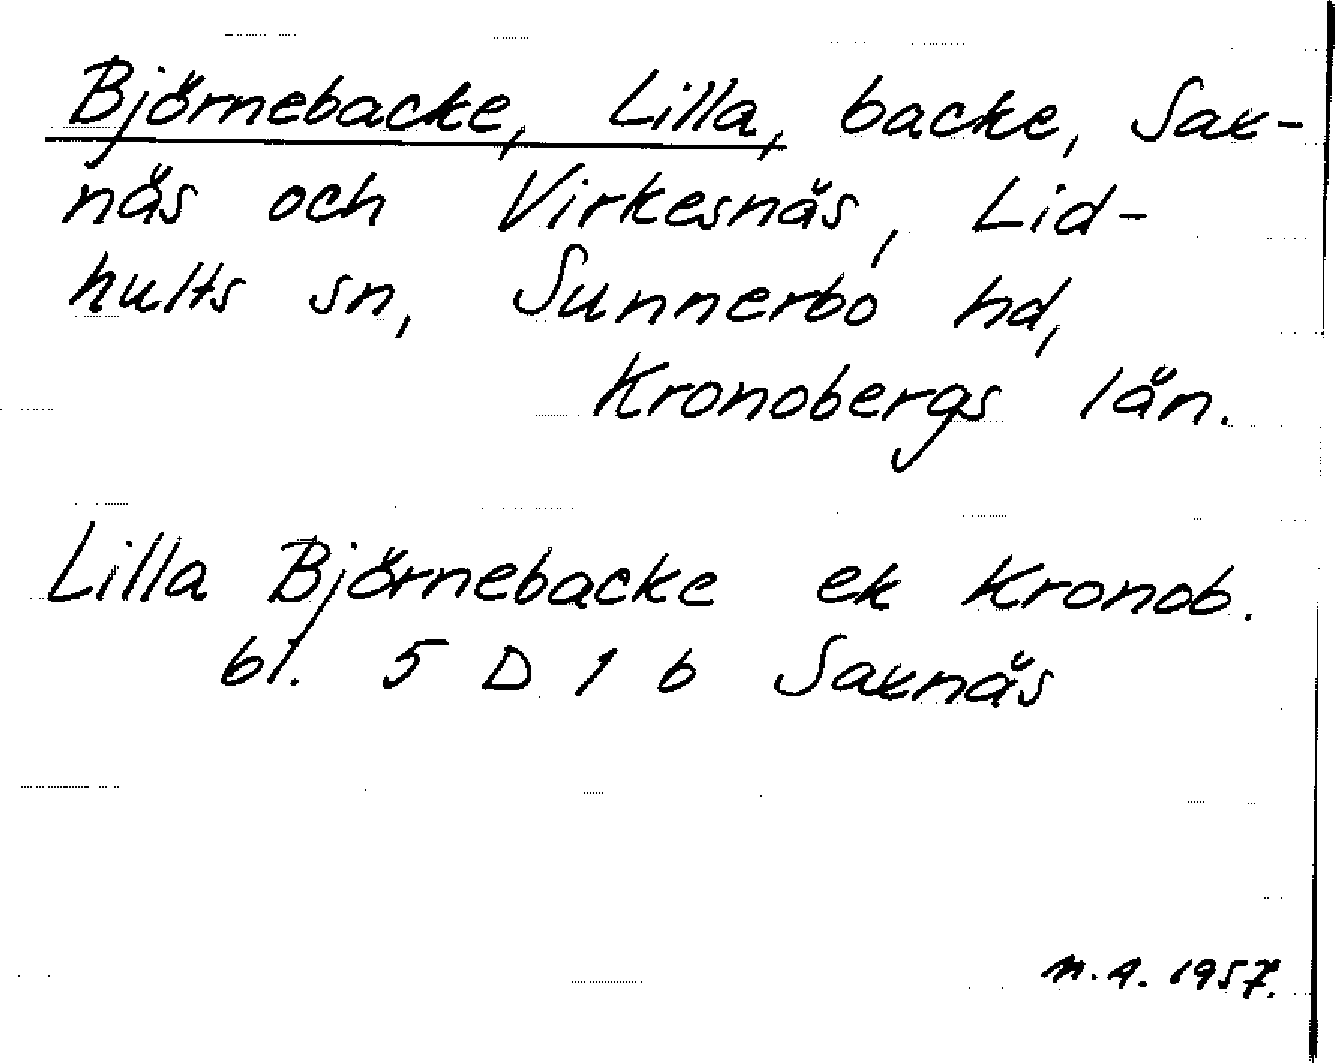 Björnebacke, Lilla, backe, Sax-
näs och Virkesnäs, Lid-
hults sn, Sunnerbo hd,
Kronobergs län.
Lilla Björnebacke ek Kronob.
bl. 5 D 1 b Saxnäs
n.a. 1957.